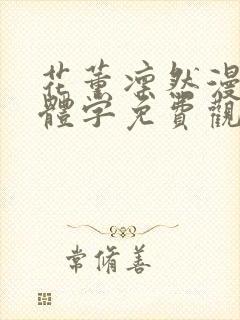 花薰凛然漫
體字免費觀
常脩善